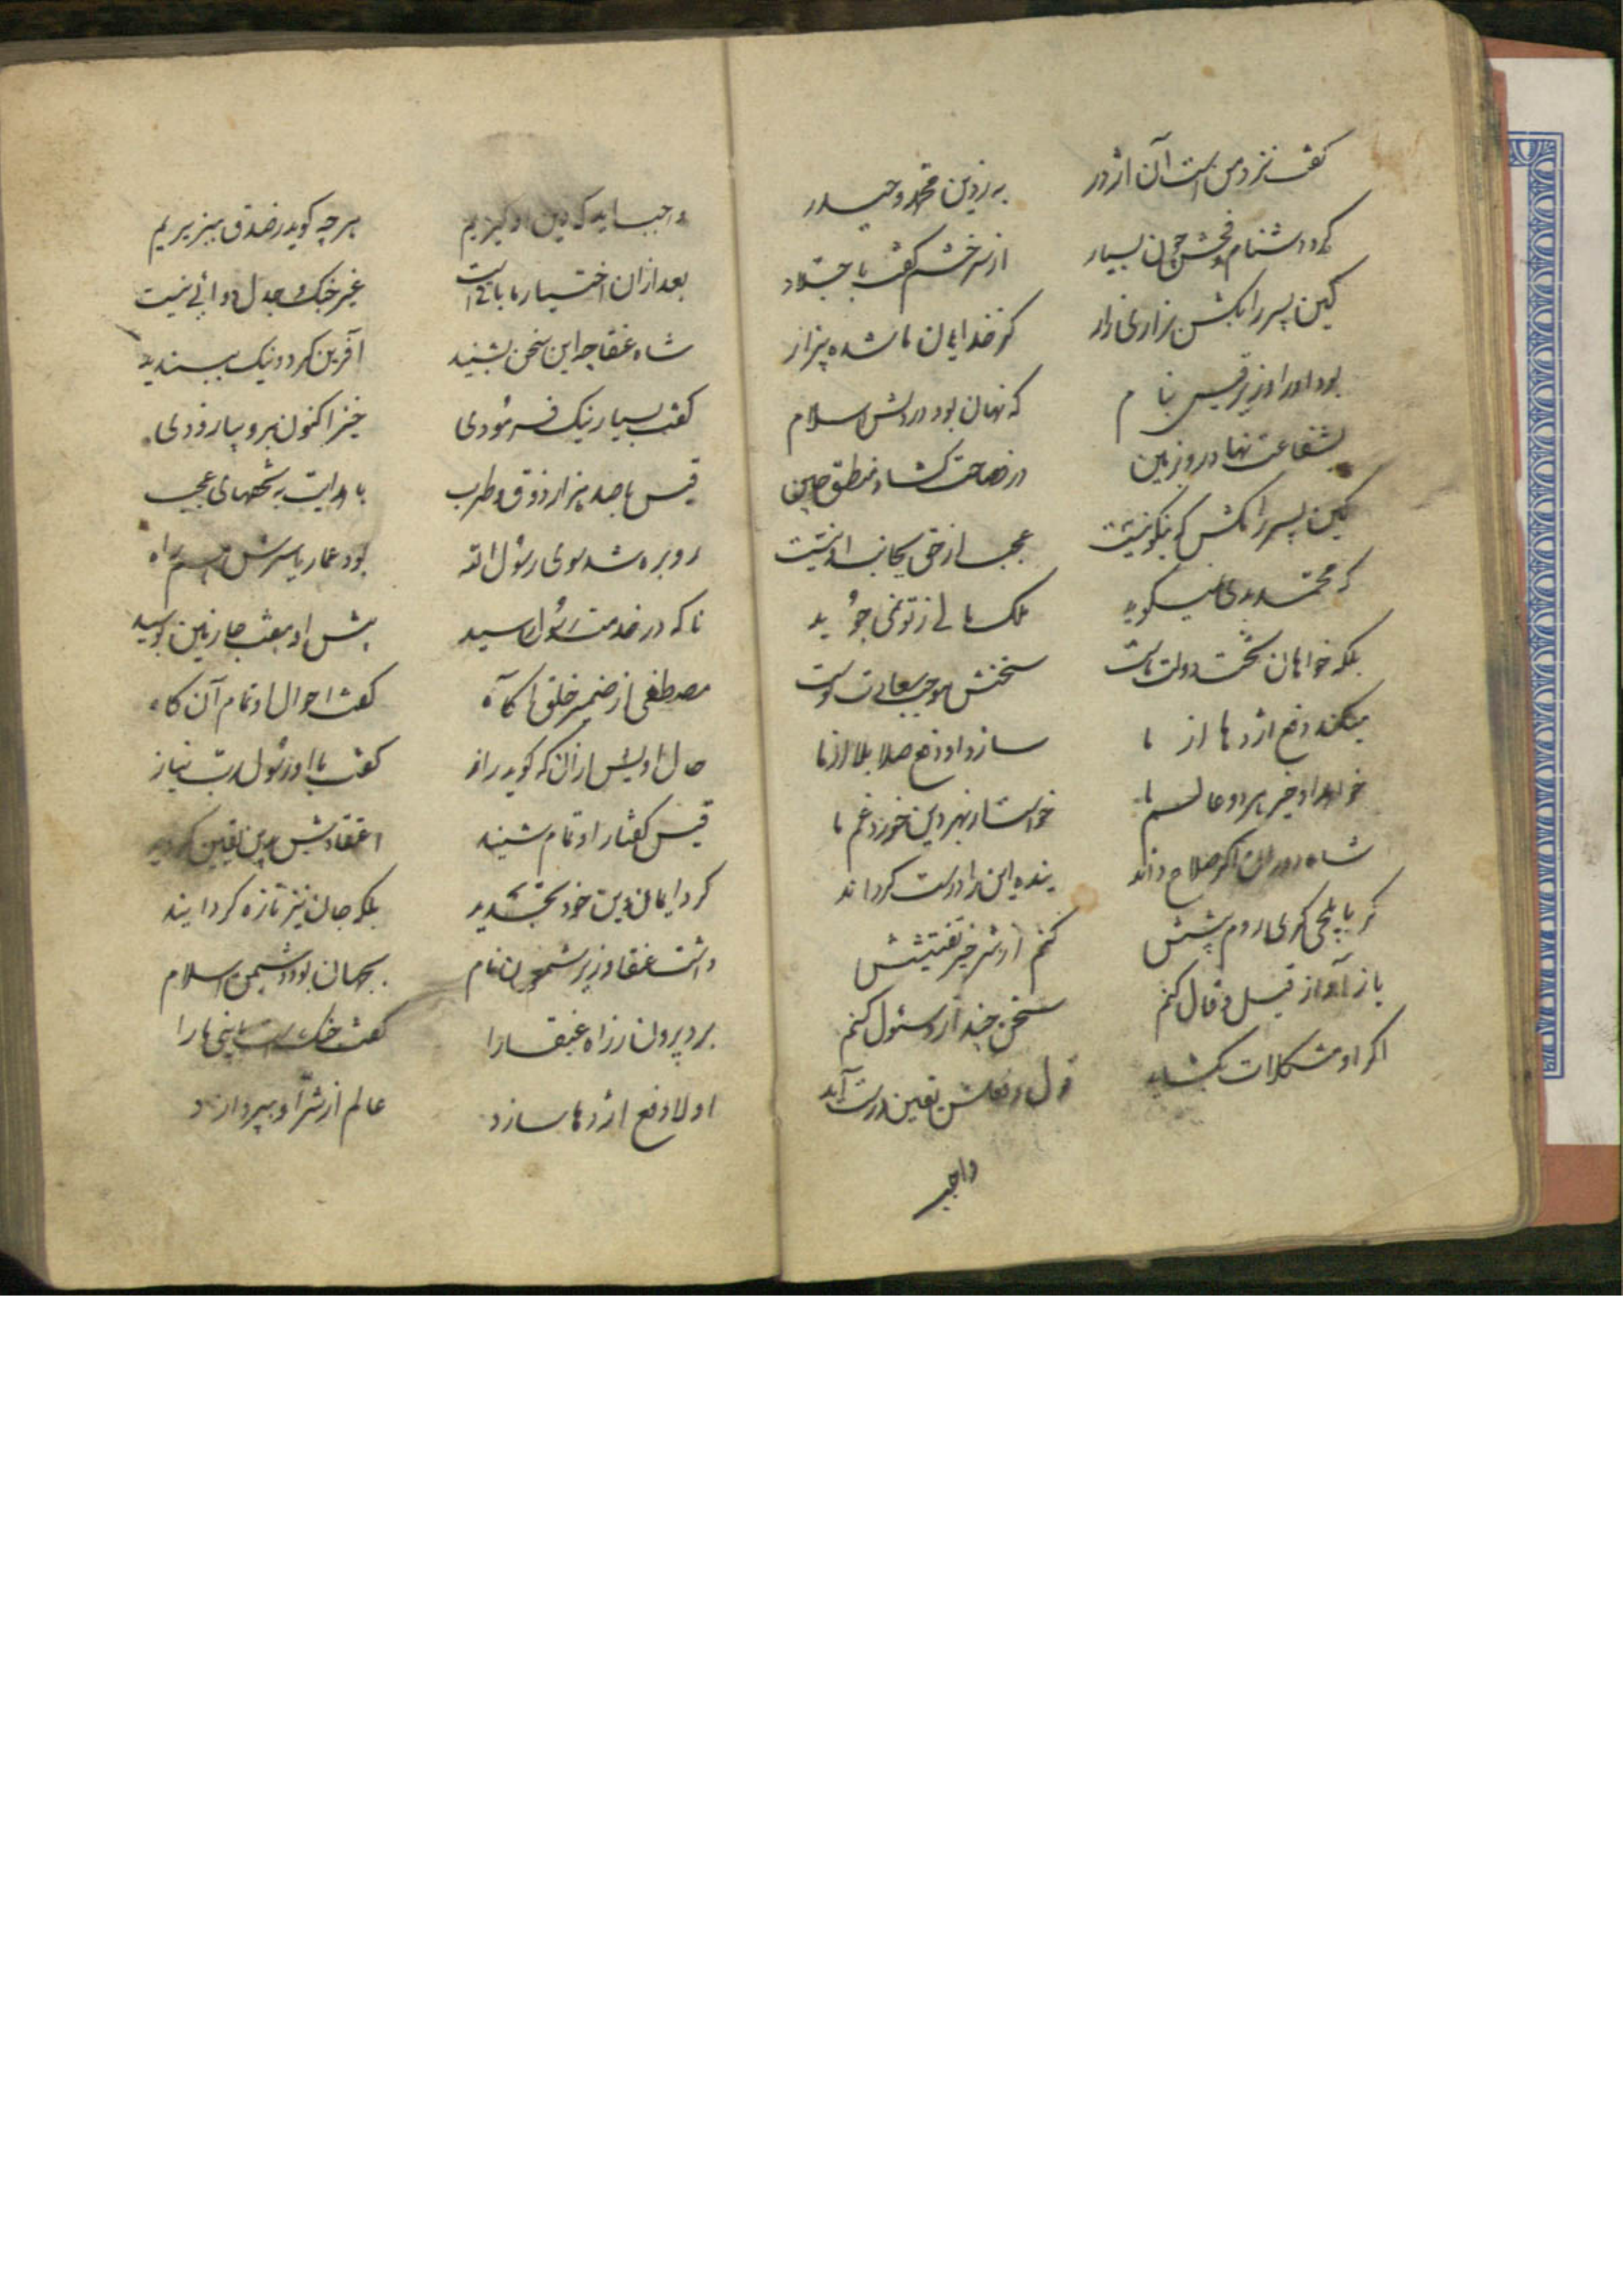 گفت نزد من است آن اژدر
به ز دین محمد و حیدر
که دشنام فحش چون بسیار
از سر خشم گفت با جلاد
کین پسر را بکش بزاری زار
کز خدایان ما شده بیزار
بود او را وزیر قیس بنام
که نهان بود در دلش اسلام
بشفاعت نهاد رو بزمین
در فصاحت گشاد منطق
کین پسر را مکش که نیکو نیست
عجب از حق بجانب او نیست
که محمد بدی نمیگوید
ملک مالی ز تو نمی جوید
بلکه خواهان تخت دولت ماست
سخنش موجب سعادت ماست
میکند دفع اژدها از ما
سازد او دفع صد بلا از ما
خواهد او خیر هر دو عالم ما
خواست از بهر دین خورد غم ما
شاه دوران اگر صلاح داند
بنده این را درست گرداند
کنم از سر خبر تفتیشش
باز آواز قیل و قال کنم
سخن چند ازو سئول کنم
اگر او مشکلات بگشاید
قول و فعلش یقین درست آید
واجب
واجب آید که دین او گیریم
هر چه گوید ز صدق بپذیریم
بعد از آن اختیار ما باقی است
غیر جنگ و جدل دوائی نیست
شاه عنقا چه این سخن بشنید
آفرین کرد و نیک بپسندید
گفت بسیار نیک فرمودی
خیز اکنون برو بیا زودی
قیس با صد هزار ذوق و طرب
با هدایت به تحفهای عجب
رو بره شد سوی رسول الله
بود عمار یاسرش همراه
تا که در خدمت رسول رسید
پیش او هفت جا زمین بوسید
مصطفی از ضمیر خلق آگاه
گفت احوال او تمام آن گاه
حال او پیش از آن که گوید راز
گفت با او رسول رب نیاز
قیس گفتار او تمام شنید
اعتقادش بدین یقین گردید
کرد ایمان دین خود تجدید
بلکه جان نیز تازه گردانید
داشت عنقا وزیر شمعون نام
بجهان بود دشمن اسلام
برد بیرون ز راه عنقا را
گفت
اولا دفع اژدها سازد
عالم از شر او بپردازد